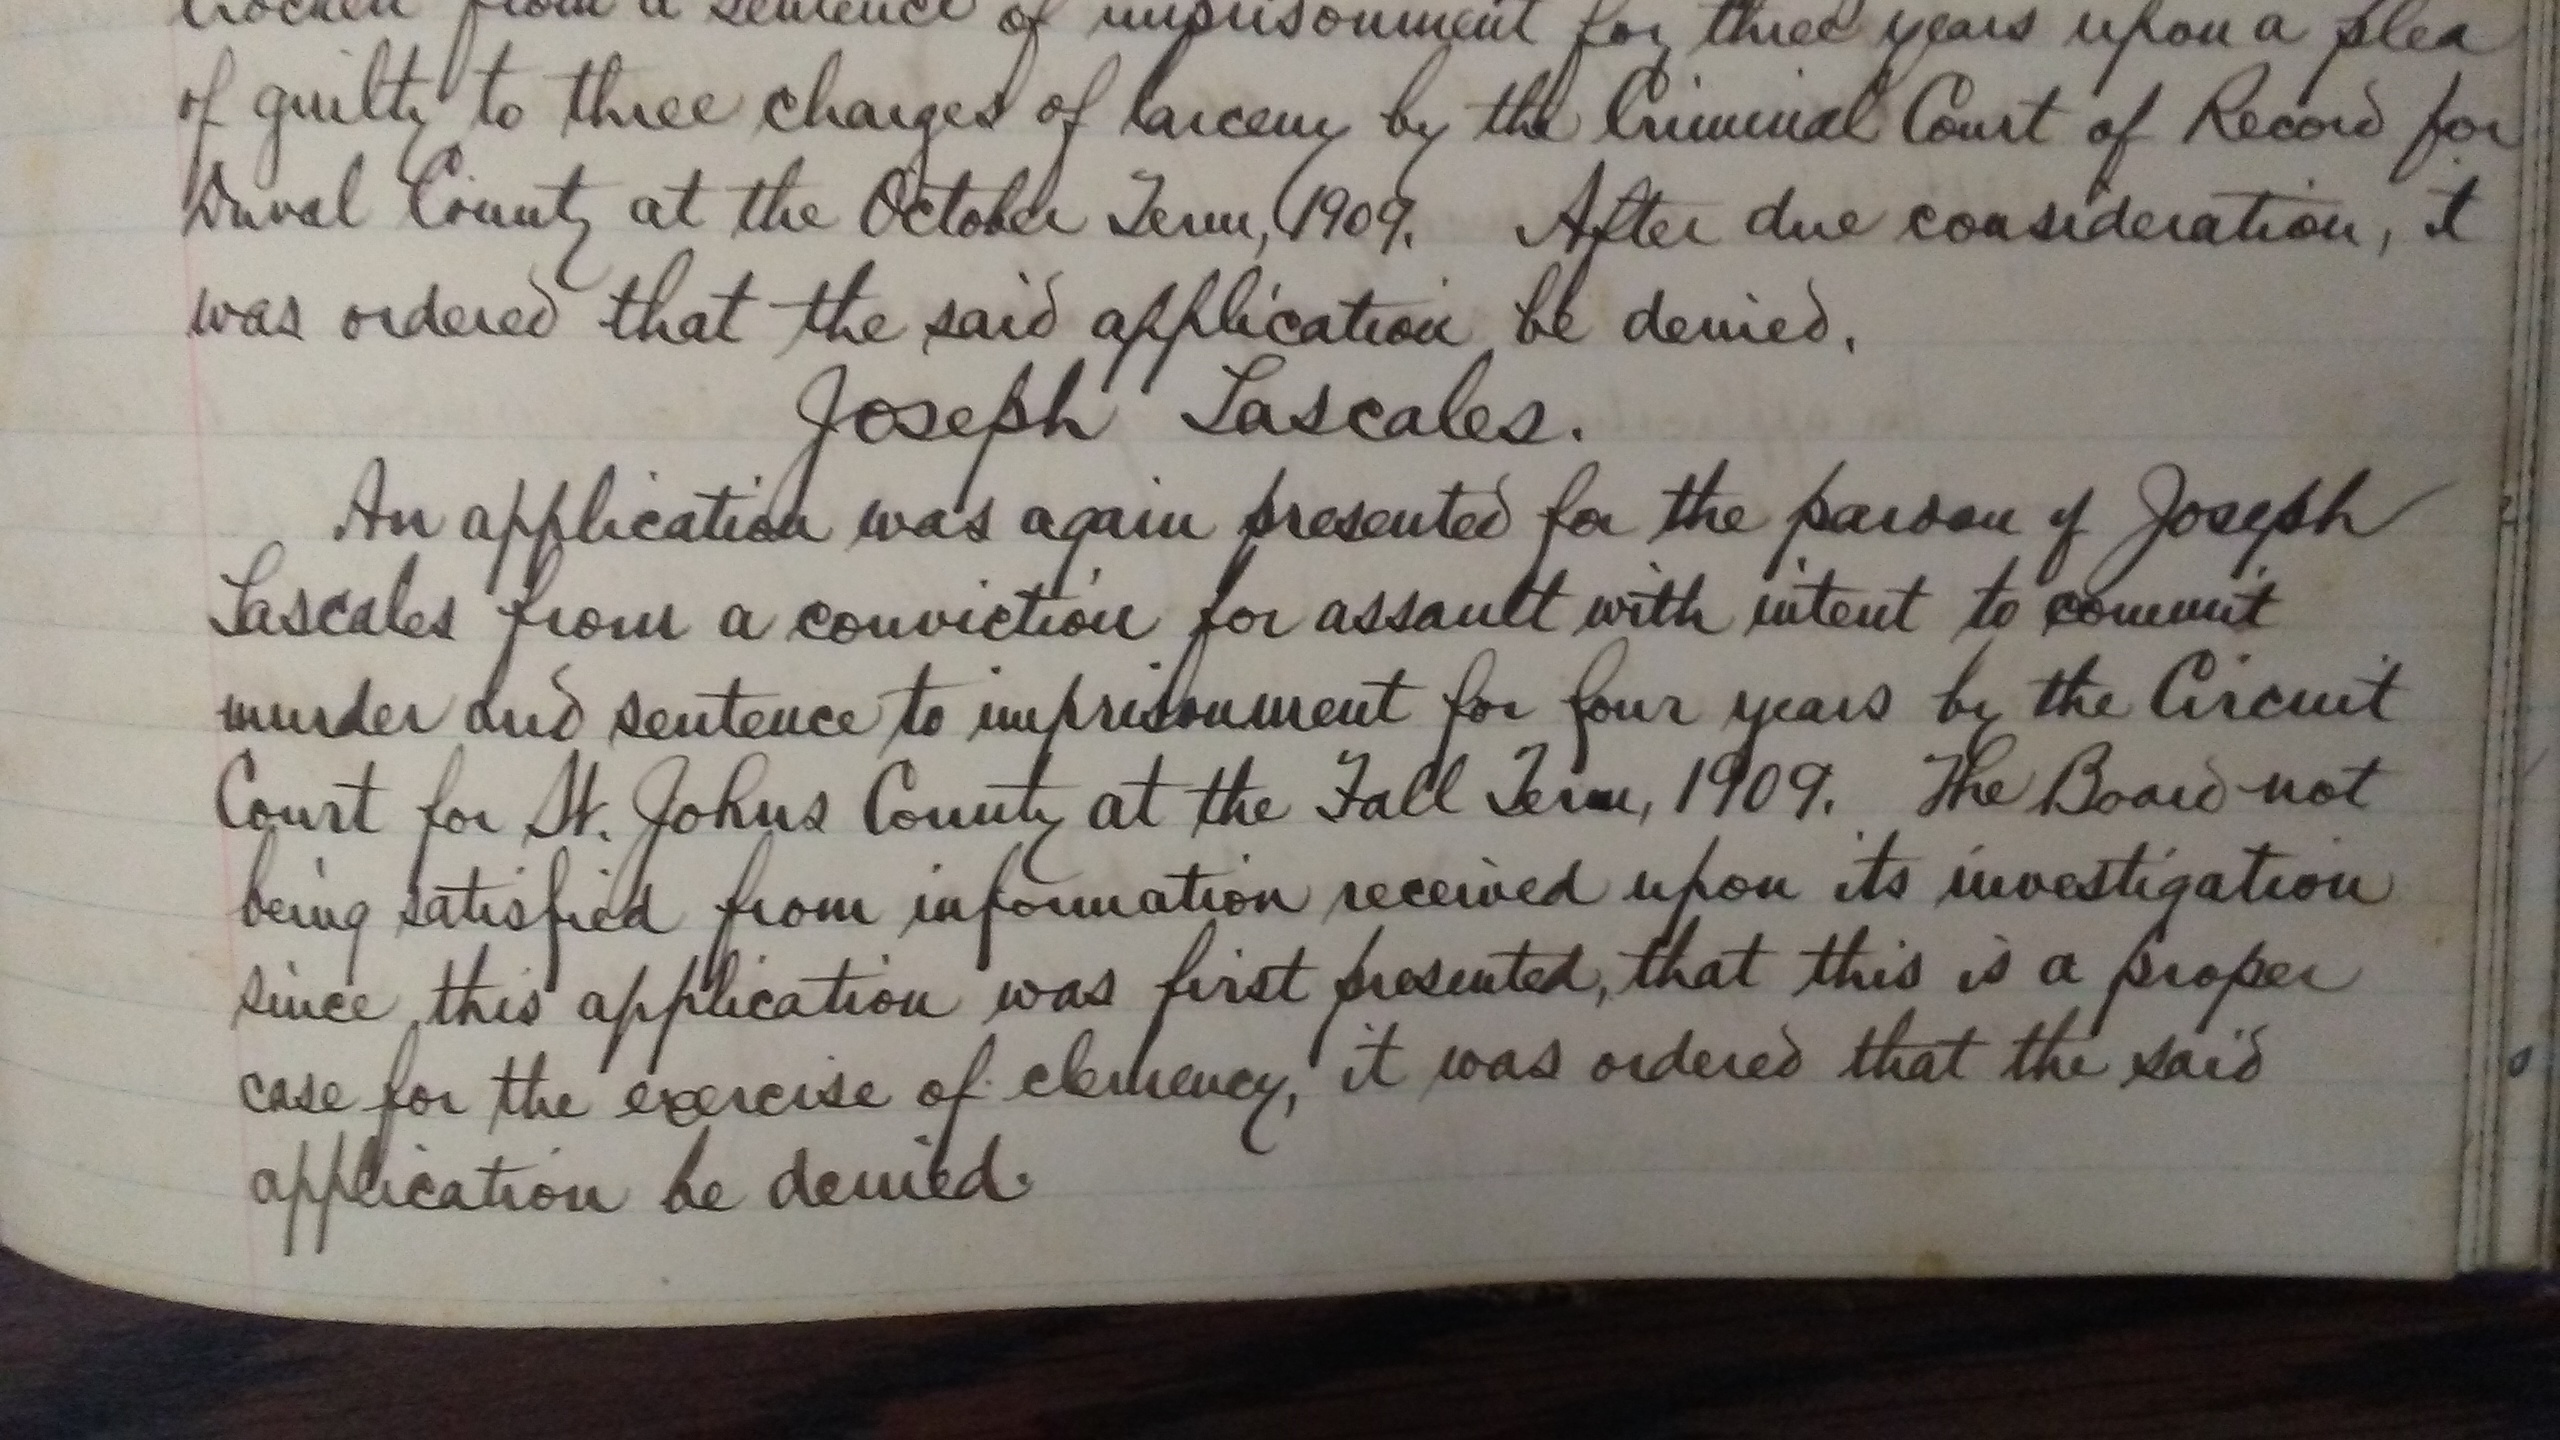 from a sentence of imprisonment for three years upon a plea
of guilty to three charges of larceny by the Criminal Court of Record for
Duval County at the October Term, 1909. After due consideration, it
was ordered that the said application be denied.
Joseph Lascales.
An application was again presented for the pardon of Joseph
Lascales from a conviction for assault with intent to commit
murder and sentence to imprisonment for four years by the Circuit
Court for St. Johns County at the Fall Term, 1909. The Board not
being satisfied from information received upon its investigation
since this application was first presented, that this is a proper
case for the exercise of clemency, it was ordered that the said
application be denied.